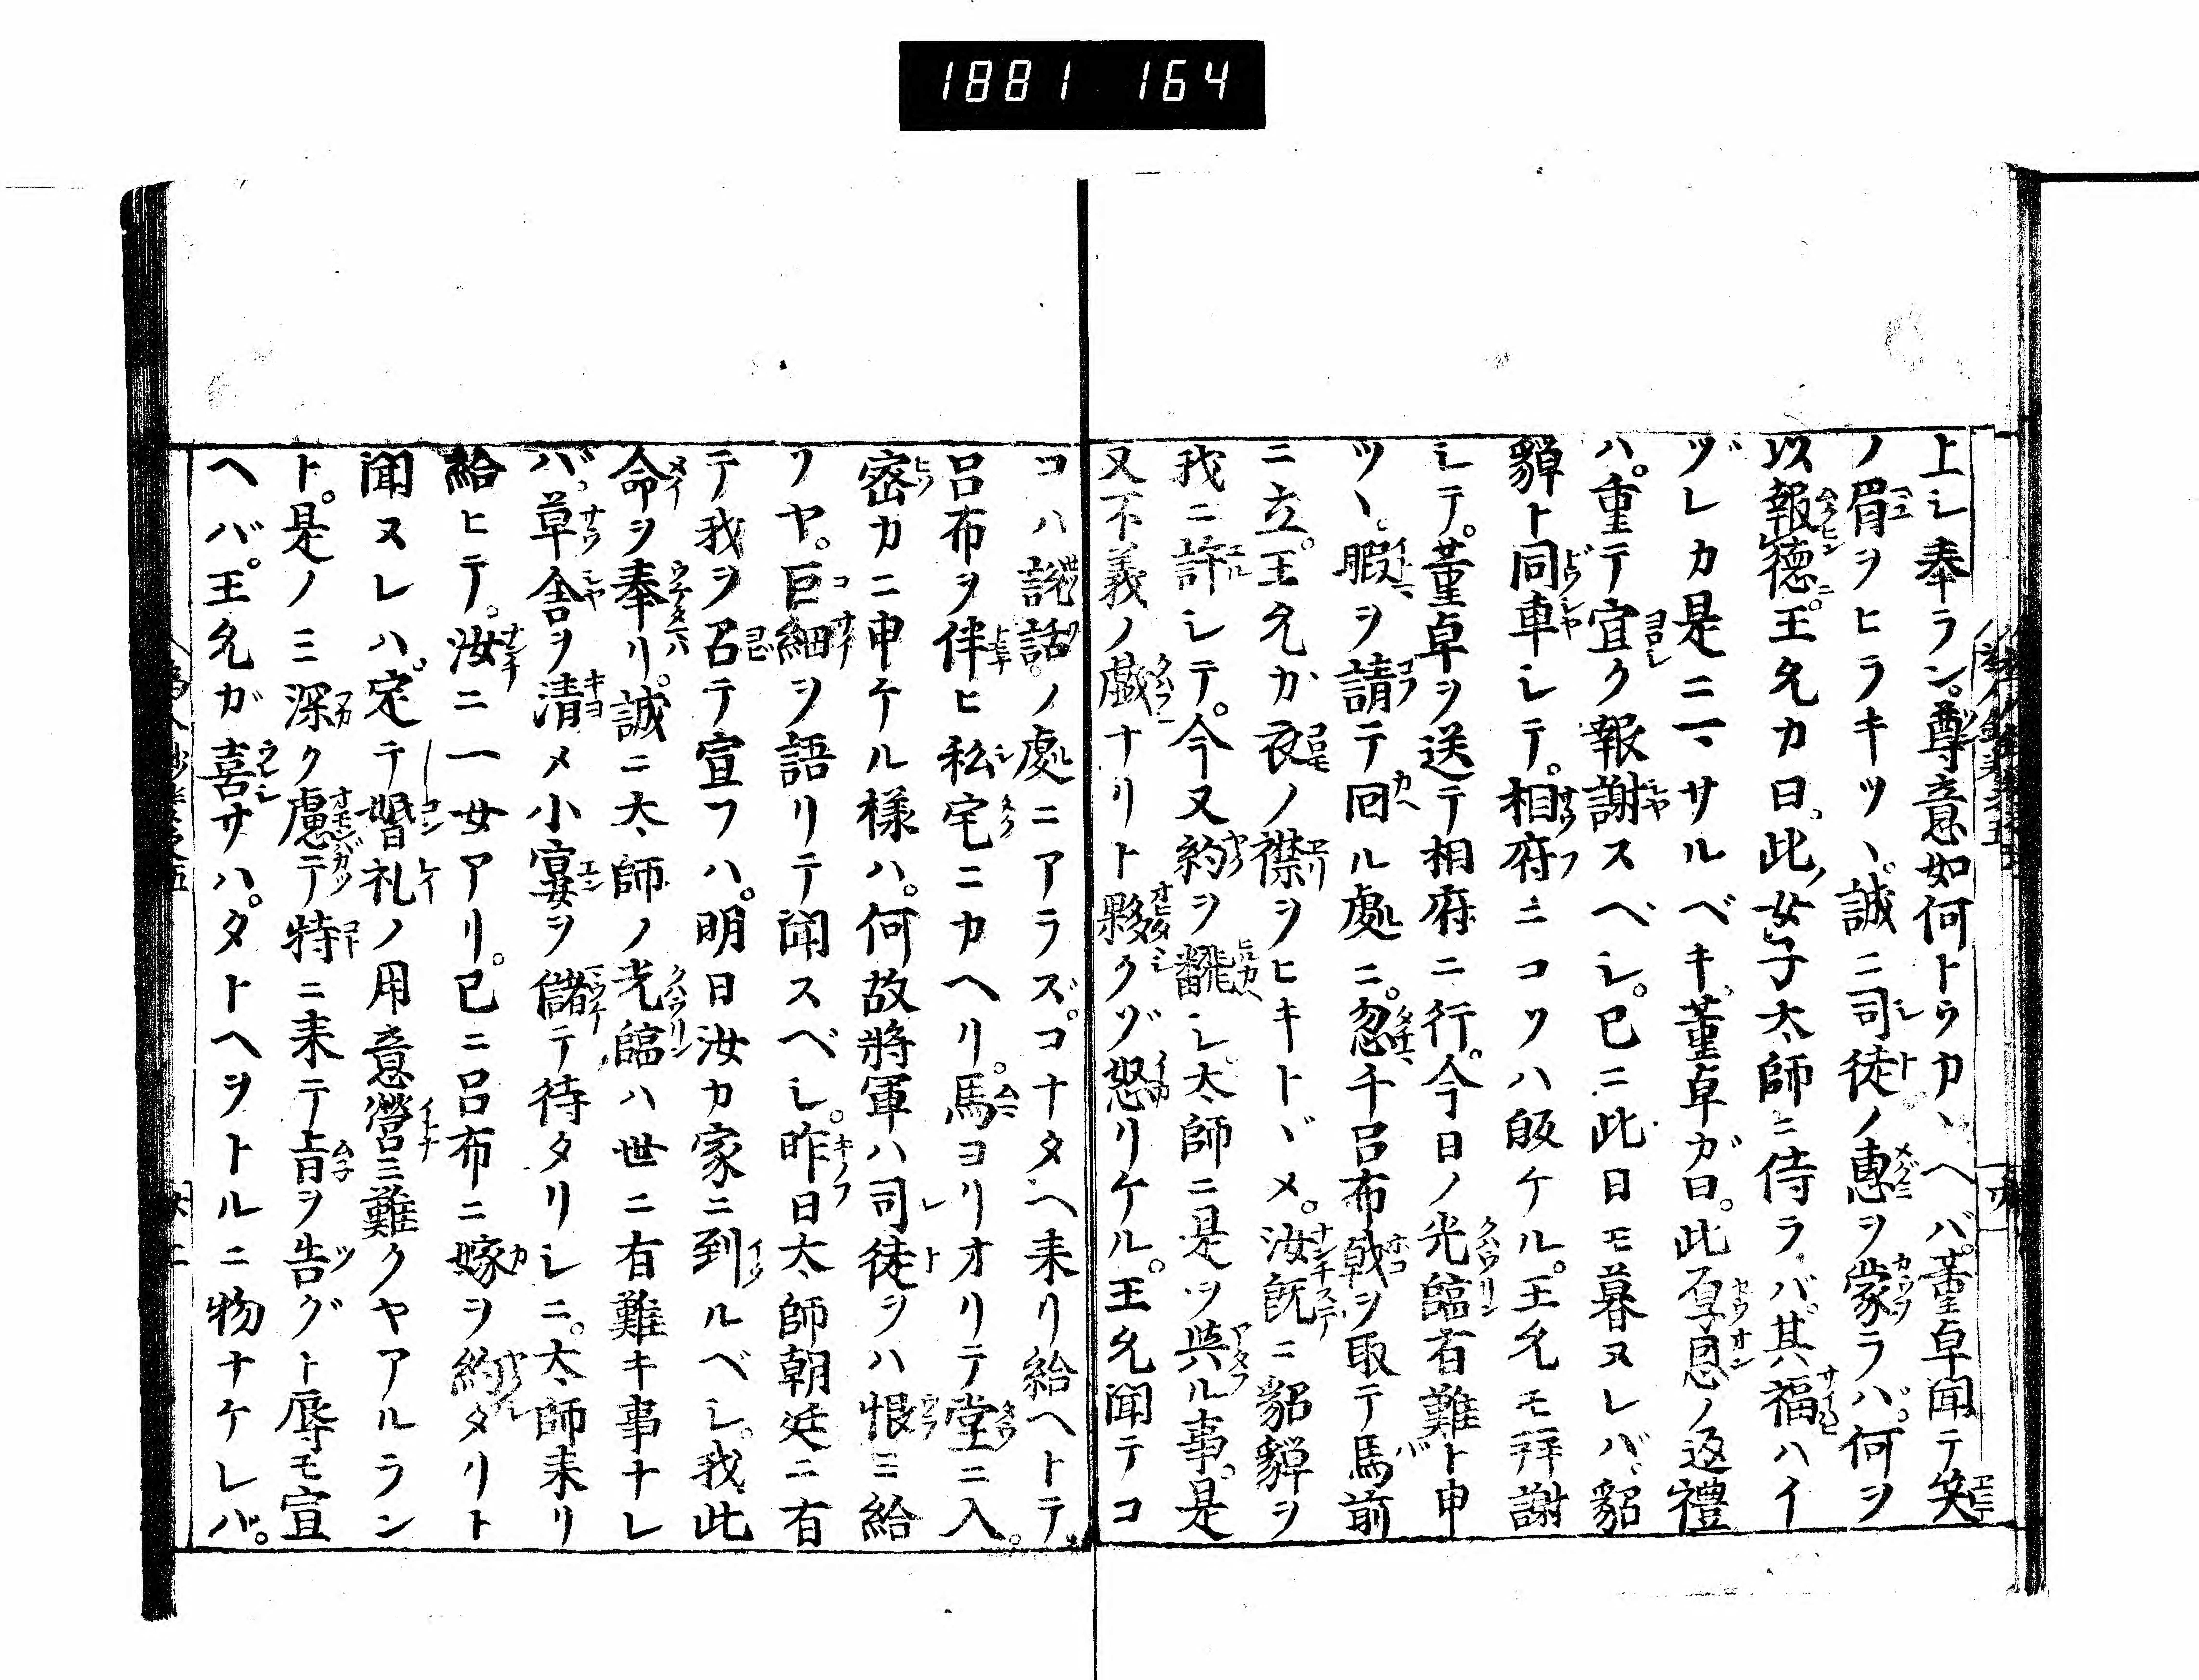 1881 164
上シ奉ラン。尊意如何トウカヽヘバ。董卓聞テ笑
ノ眉ヲヒラキツヽ。誠ニ司徒ノ惠ヲ蒙ラバ。何ヲ
以報德。王允カ曰。此女子太師ニ侍ラバ。其福ハイ
ヅレカ是ニマサルベキ。董卓ガ曰。此厚恩ノ返禮
ハ。重テ宜ク報謝スヘシ。已ニ此日モ暮ヌレバ。貂
貚ト同車シテ。相府ニコソハ皈ケル。王允モ拜謝
シテ。董卓ヲ送テ相府ニ行。今日ノ光臨有難ト申
ツヽ。暇ヲ請テ回ル處ニ。忽チ呂布戟ヲ取テ馬前
ニ立。王允カ衣ノ襟ヲヒキトヾメ。汝既ニ貂貚ヲ
我ニ許シテ。今又約ヲ飜シ。太師ニ是ヲ與ル事。是
又不義ノ戲ナリト夥クゾ怒リケル。王允聞テコ
コハ說話ノ處ニアラズ。コナタヘ来リ給ヘトテ
呂布ヲ伴ヒ私宅ニカヘリ。馬ヨリオリテ堂ニ入。
密カニ申ケル様ハ。何故將軍ハ司徒ヲハ恨ミ給
フヤ。巨細ヲ語リテ聞スベシ。昨日太師朝廷ニ有
テ我ヲ召テ宣フハ。明日汝カ家ニ到ルベシ。我此
命ヲ奉リ。誠ニ太師ノ光臨ハ世ニ有難キ事ナレ
バ。草舎ヲ清メ小宴ヲ儲テ待タリシニ。太師来リ
給ヒテ。汝ニ一女アリ。已ニ呂布ニ嫁ヲ約タリト
聞ヌレハ。定テ婚礼ノ用意營ミ難クヤアルラン
ト。是ノミ深ク慮テ特ニ来テ旨ヲ告グト辱モ宣
ヘバ。王允ガ喜サハ。タトヘヲトルニ物ナケレバ。